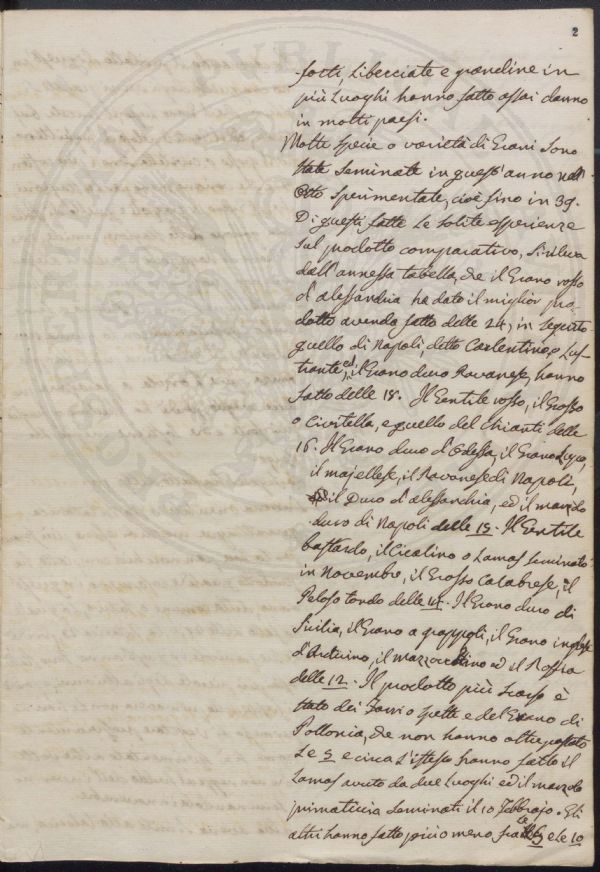 2
forti, Libecciate e grandine in
più Luoghi hanno fatto assai danno
in molti paesi.
Molte specie o varietà di Grani sono
state seminate in quest'anno nell'
Orto Sperimentale, cioè fino in 39.
Di questi fatte le solite esperienze
sul prodotto comparativo, si rileva
dall'annessa tabella, che il Grano rosso
d'alessandria ha dato il miglior pro-
dotto avendo fatto delle 24, in seguito
quello di Napoli, detto Carlentino, e Lus-
trante, ed il Grano duro Ravanese, hanno
fatto delle 18. Il Gentile rosso, il Grosso
o Civitella, e quello del Chianti delle
16. Il Grano duro d'Odessa, il Grano
il majellese, il Ravanese di Napoli,
il Duro d'alessandria, ed il marzolo
duro di Napoli delle 15. Il Gentile
bastardo, il Cicalino o Lamas seminato
in Novembre, il Grosso Calabrese, il
Peloso tondo delle 14. Il Grano duro di
Sicilia, il Grano a grappoli, il Grano inglese
d'Arduino, il mazzocchino ed il Rossia
delle 12. Il prodotto più scarso è
stato dei Farri o Spelte e del Grano di
Pollonia, che non hanno oltrepassato
Le 5 e circa l'istesso hanno fatto il
Lamas avuto da due Luoghi ed il marzolo
primaticcio seminati il 10 Febbrajo. Gli
altri hanno fatto più o meno, fra le e le 10